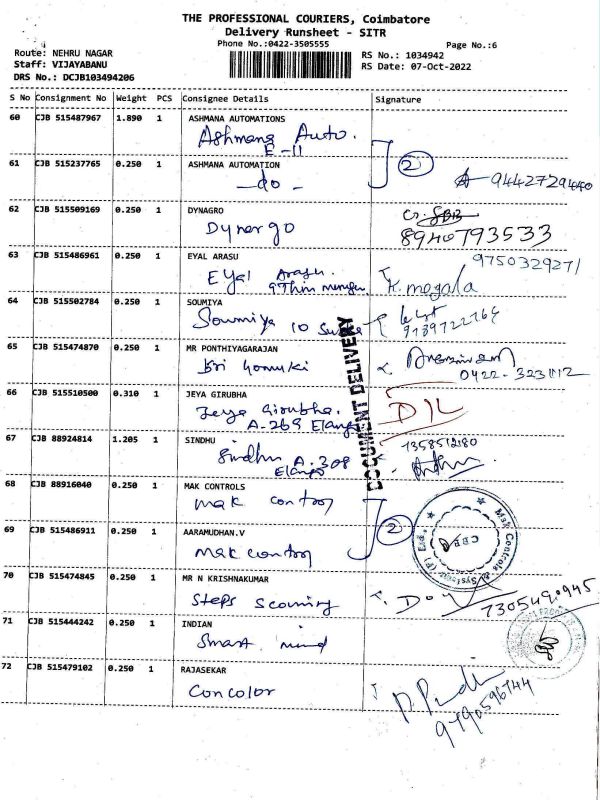 THE PROFESSIONAL COURIERS, Coimbatore
Delivery Runsheet - SITR
Phone No.:0422-3505555
Page No.:6
Route: NEHRU NAGAR
Staff: VIJAYABANU
DRS No.: DCJB103494206
RS No.: 1034942
RS Date: 07-Oct-2022
S No Consignment No Weight PCS Consignee Details Signature
60 CJB 515487967 1.890 1 ASHMANA AUTOMATIONS
Ashmana Auto.
E-11
2
61 CJB 515237765 0.250 1 ASHMANA AUTOMATION
-do-
62 CJB 515509169 0.250 1 DYNAGRO
Dynargo
8940793533
63 CJB 515486961 0.250 1 EYAL ARASU
9750329271
Eyal Arasu.
K. megala
64 CJB 515502784 0.250 1 SOUMIYA
Soumiya 10
65 CJB 515474870 0.250 1 MR PONTHIYAGARAJAN
Sri Gomuki
66 CJB 515510500 0.310 1 JEYA GIRUBHA
Jeya Girubha.
A-269 Elango
D/L
DOCUMENT DELIVERY
67 CJB 88924814 1.205 1 SINDHU
Sindhu A-308
Elango
68 CJB 88916040 0.250 1 MAK CONTROLS
mak control
2
69 CJB 515486911 0.250 1 AARAMUDHAN.V
mak control
Mak Controls & Systems (P) Ltd.
CBE
70 CJB 515474845 0.250 1 MR N KRISHNAKUMAR
Steps Scouring
7305490945
71 CJB 515444242 0.250 1 INDIAN
Smart mind
72 CJB 515479102 0.250 1 RAJASEKAR
Concolor
9790596744